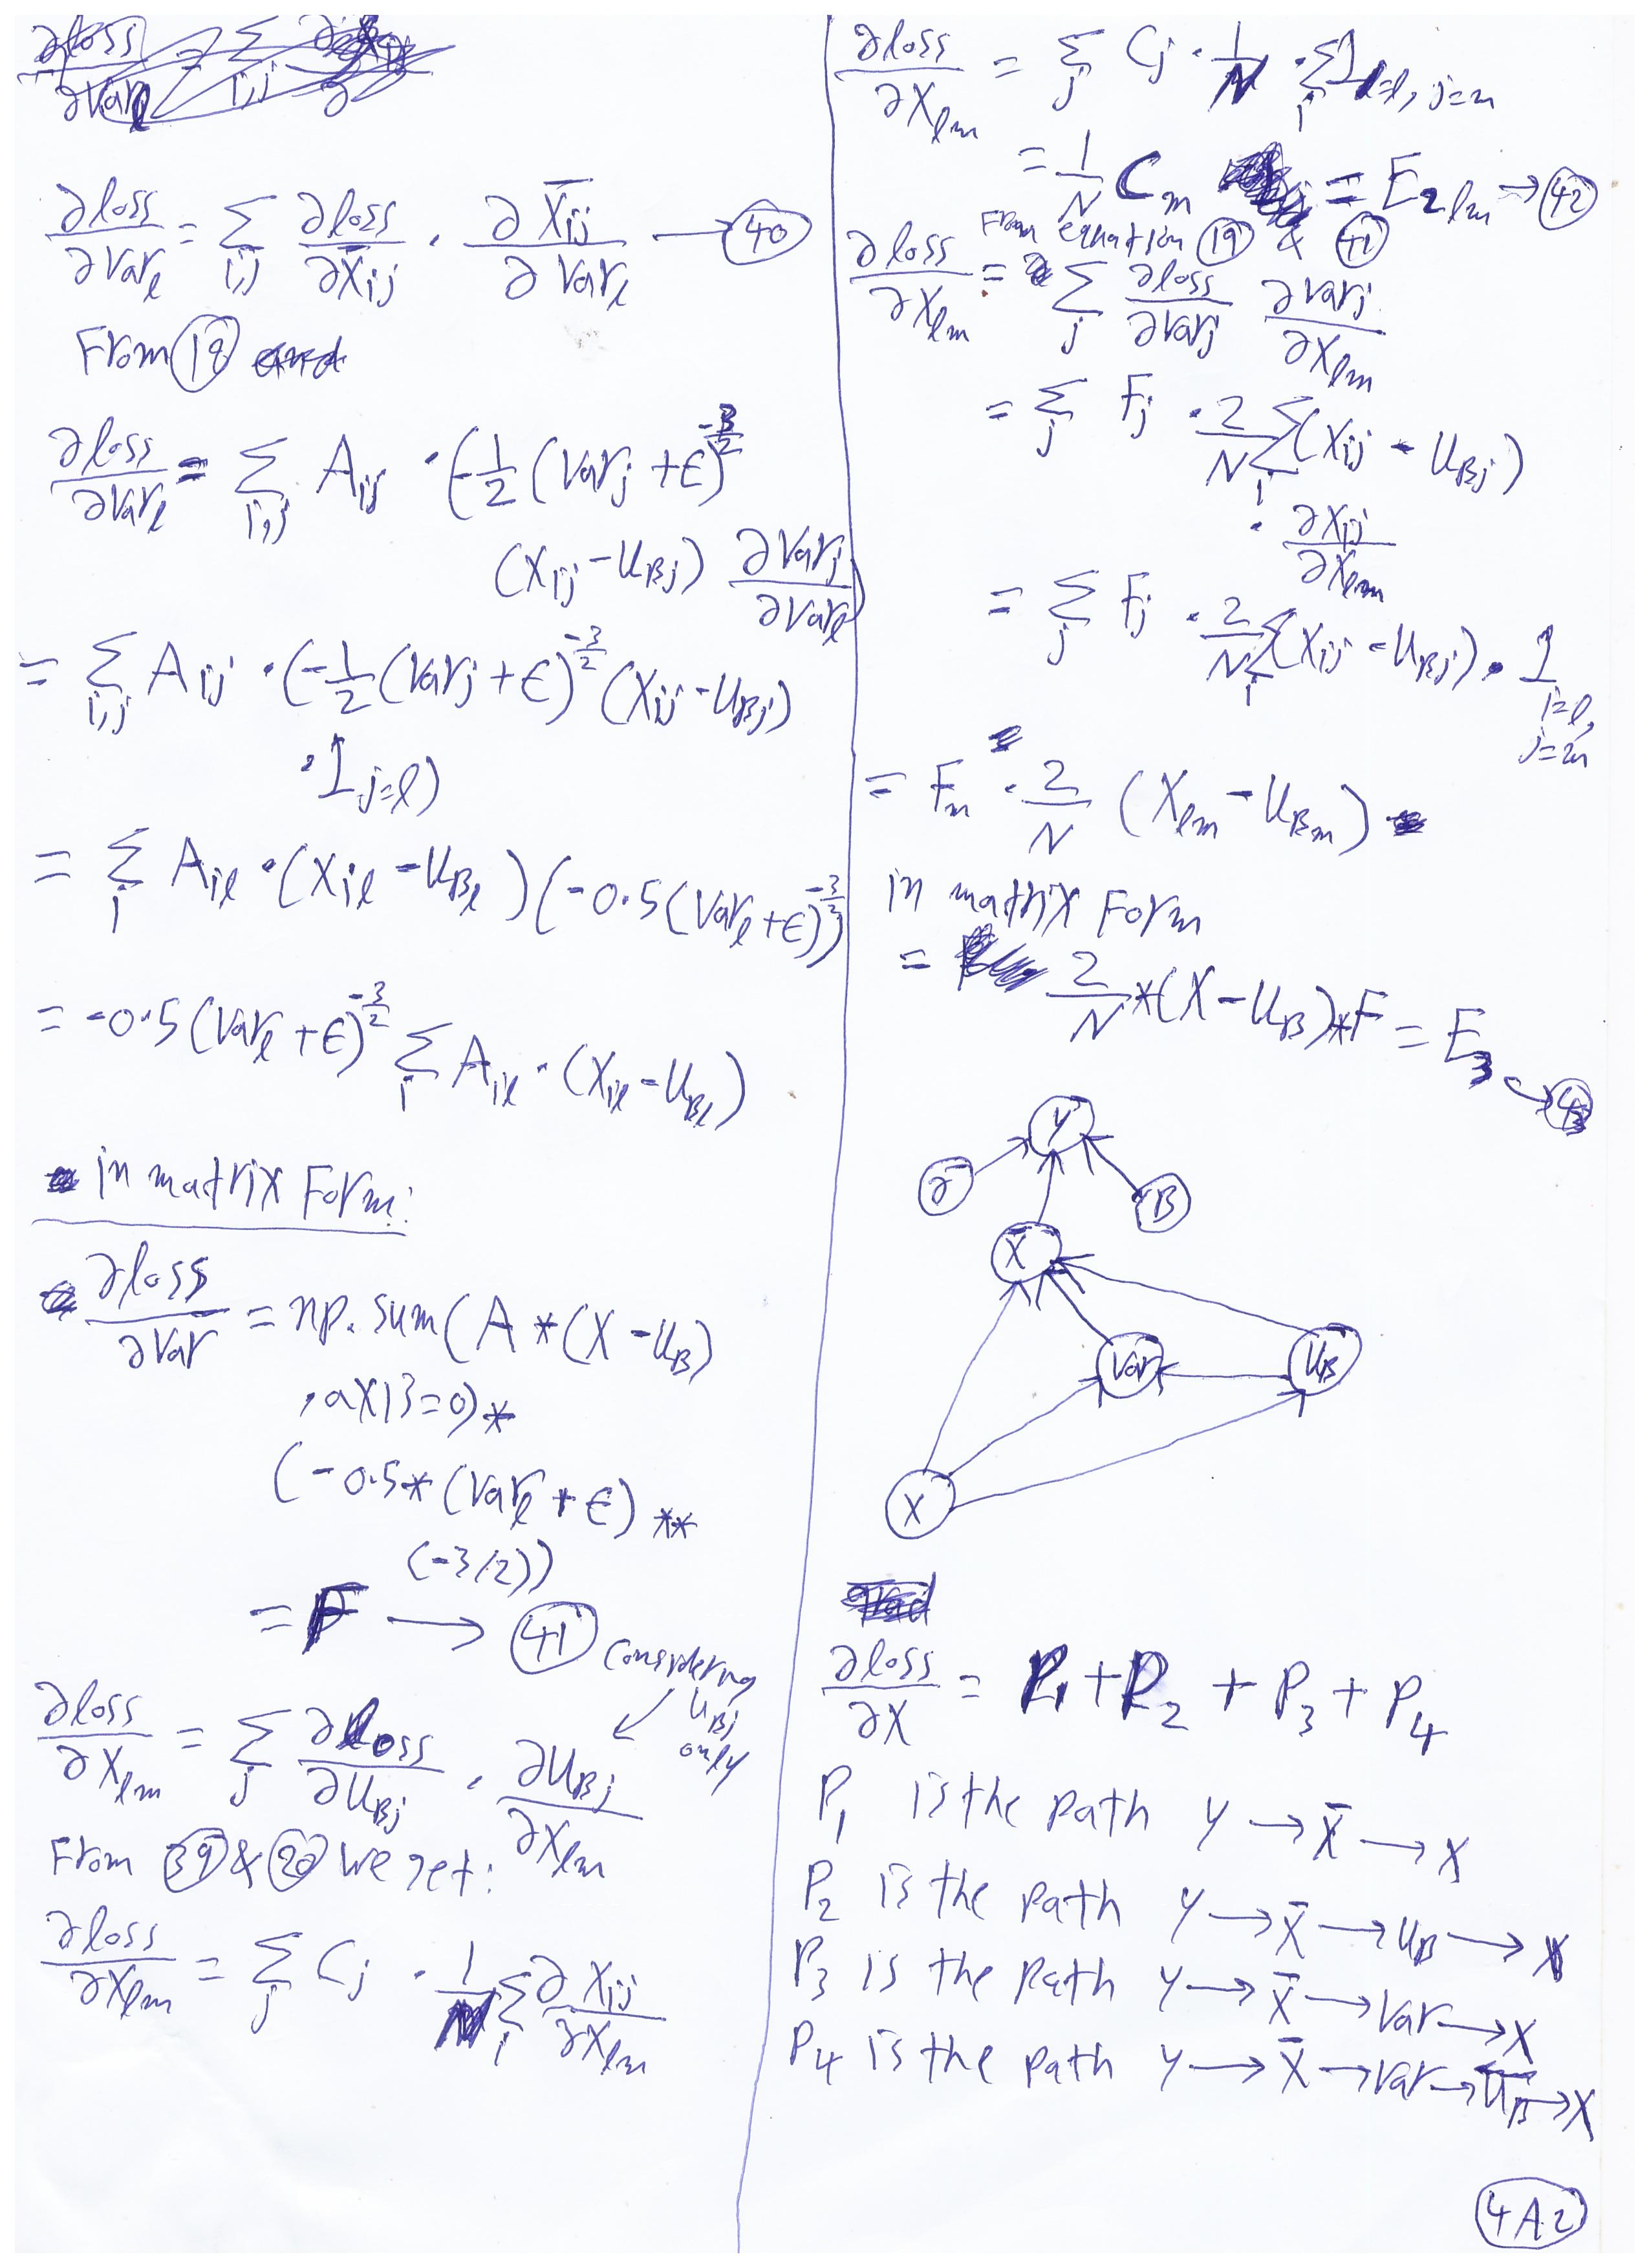 ∂loss/∂Var_l = Σ_{i,j} ∂loss/∂X̄_ij · ∂X̄_ij/∂Var_l → (40)
From (18)
∂loss/∂Var_l = Σ_{i,j} A_ij · (-1/2 (Var_j + ϵ)^{-3/2}
(X_ij - U_Bj) ∂Var_j/∂Var_l)
= Σ_{i,j} A_ij · (-1/2 (Var_j + ϵ)^{-3/2} (X_ij - U_Bj)
· 1_{j=l})
= Σ_i A_il · (X_il - U_Bl) (-0.5 (Var_l + ϵ)^{-3/2})
= -0.5 (Var_l + ϵ)^{-3/2} Σ_i A_il · (X_il - U_Bl)
in matrix Form:
∂loss/∂Var = np.sum(A * (X - U_B)
, axis=0) *
(-0.5 * (Var_l + ϵ) **
(-3/2))
= F → (41)
Considering
U_Bj
only
∂loss/∂X_lm = Σ_j ∂loss/∂U_Bj · ∂U_Bj/∂X_lm
From (39) & (20) we get:
∂loss/∂X_lm = Σ_j C_j · 1/N Σ_i ∂X_ij/∂X_lm
∂loss/∂X_lm = Σ_j C_j · 1/N · Σ_i 1_{i=l, j=m}
= 1/N C_m = E_2lm → (42)
From equation (19) & (41)
∂loss/∂X_lm = Σ_j ∂loss/∂Var_j ∂Var_j/∂X_lm
= Σ_j F_j · 2/N Σ_i (X_ij - U_Bj)
· ∂X_ij/∂X_lm
= Σ_j F_j · 2/N Σ_i (X_ij - U_Bj) · 1_{i=l, j=m}
= F_m · 2/N (X_lm - U_Bm)
in matrix Form
= 2/N * (X - U_B) * F = E_3 → (43)
Y
γ
B
X̄
Var
U_B
X
∂loss/∂X = P_1 + P_2 + P_3 + P_4
P_1 is the path Y → X̄ → X
P_2 is the path Y → X̄ → U_B → X
P_3 is the path Y → X̄ → Var → X
P_4 is the path Y → X̄ → Var → U_B → X
4A2